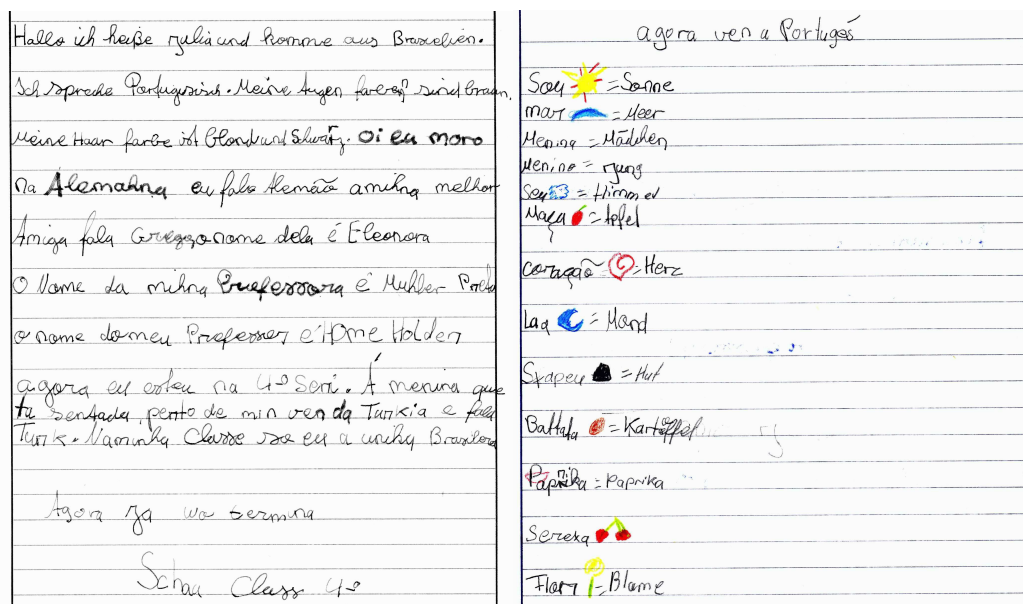 Hallo ich heiße Julia und komme aus Brasielien.
Ich spreche Portugisisch. Meine Augen farben sind braun.
Meine Haar farbe ist Blond und Schwarz. Oi eu moro
na Alemahna eu falo Alemão amihna melhor
Amiga fala Greggo o nome dela é Eleonora
O Name da mihna Proefessora é Muhler
o nome do meu Professer é Holder
agora eu esteu na 4º Seri. A menina que
ta sentada perto de min ven da Turkia e fala
Turk. Naminha Classe so eu a unika Brasilera
Agora ja wo termina
Schau Class 4º
agora ven a Portugés
Sou = Sonne
mar = Meer
Menina = Mädchen
Menino = Jung
Seu = Himmel
Maça = Apfel
coração = Herz
Lua = Mond
Sxapeu = Hut
Battata = Kartoffel
Paprika = Paprika
Serexa
Florr = Blume